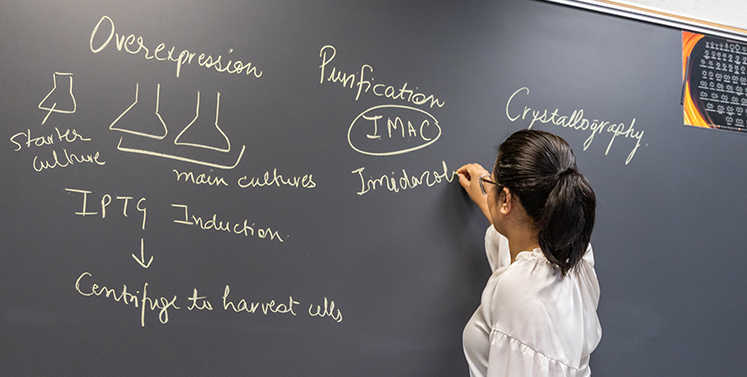 Overexpression
starter
culture
main cultures
IPTG Induction
Centrifuge to harvest cells
Purification
IMAC
Imidazol
Crystallography